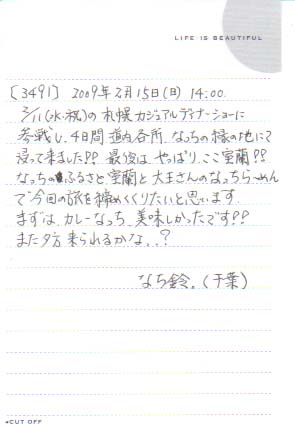 LIFE IS BEAUTIFUL
[3491] 2009年2月15日(日) 14:00.
2/11(水・祝)の札幌カジュアルディナーショーに
参戦し、4日間道内各所、なっちの縁の地にて
浸って来ました!? 最後は、やっぱり、ここ室蘭!?
なっちのふるさと室蘭と大王さんのなっちらーめん
で今回の旅を締めくくりたいと思います
まずは、カレーなっち、美味しかったです!?
また夕方来られるかな..?
なち鈴.(千葉)
CUT OFF